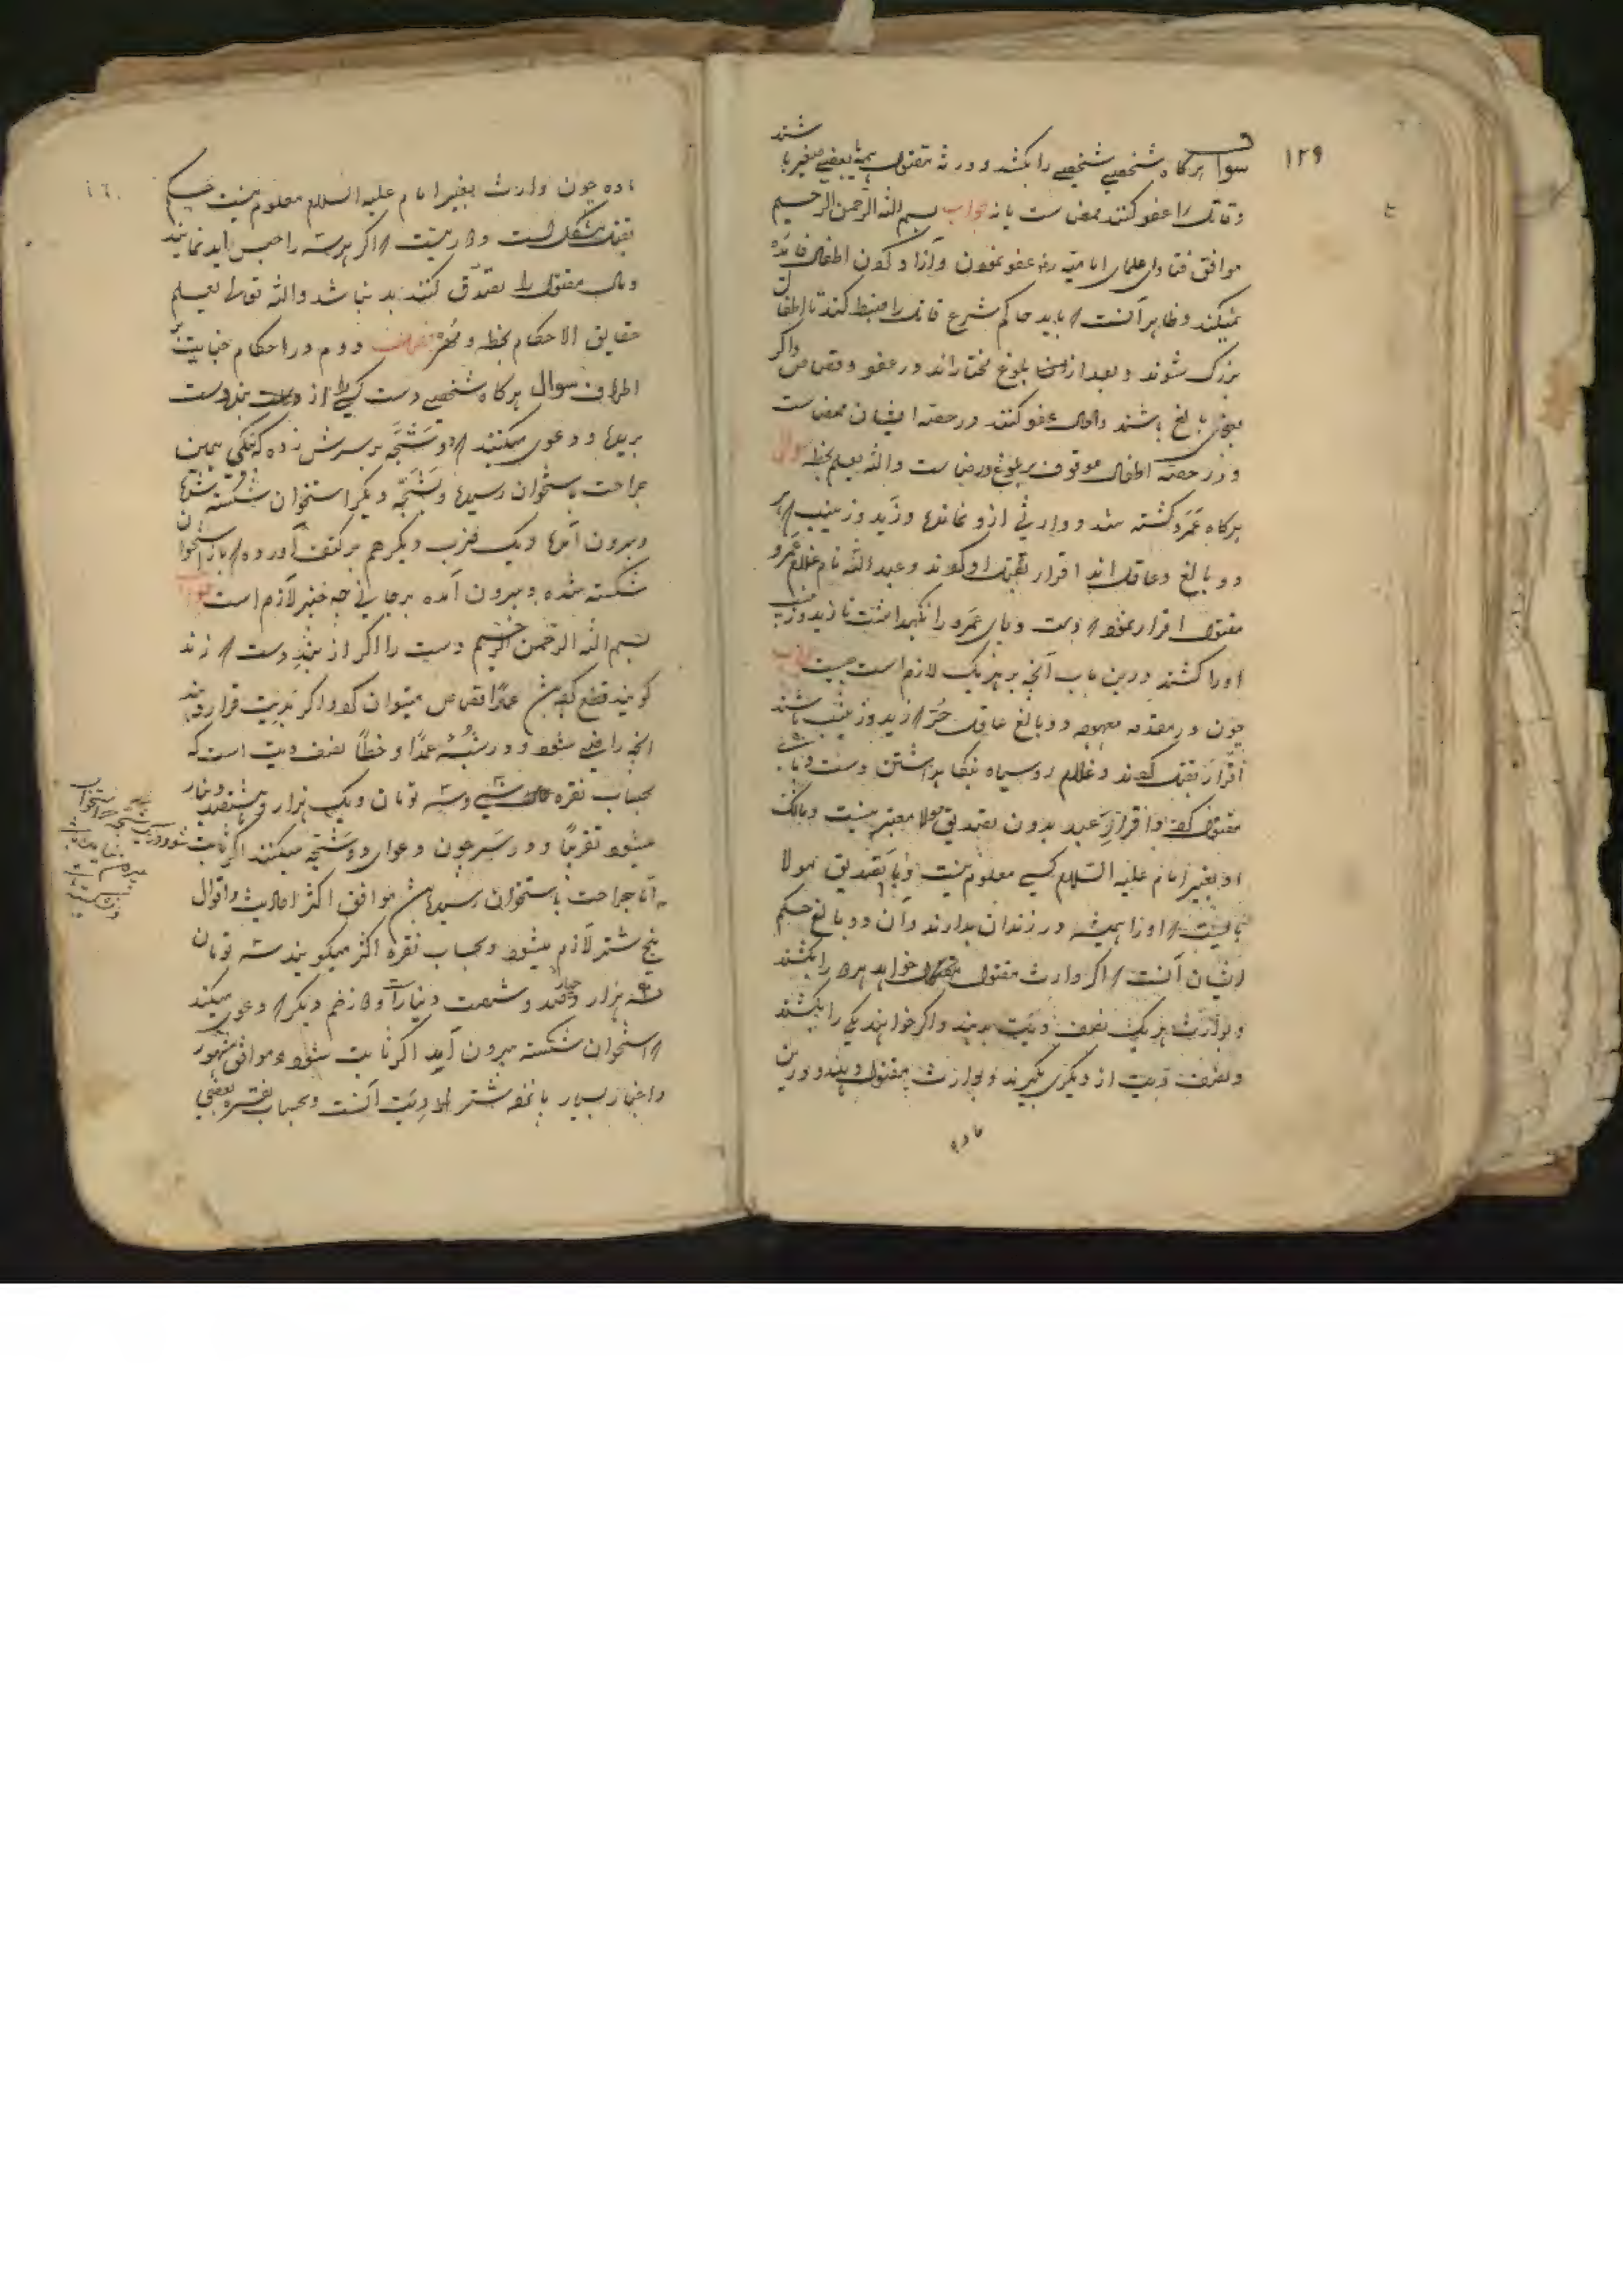 ۱۲۹
سوال هرکاه شخصی شخصی را بکشد و ورثه مقتول همه یا بعضی صغیر باشند
و قاتل را عفو کنند ممضی ست یا نه جواب بسم الله الرحمن الرحیم
موافق فتاوی علمای امامیه رض عفو نمودن و آزاد کردن اطفال فایده
نمیکند و ظاهر آنست که باید حاکم شرع قاتل را ضبط کند تا اطفال
بزرک شوند و بعد از بلوغ مختاراند در عفو و قصاص و اکر
بعضی بالغ باشند و عفو کنند در حصه ایشان ممضی ست
و در حصه اطفال موقوف بر بلوغ و رضاست والله یعلم بخطه سوال
هرکاه عمرو کشته شد و وارثی ازو نمانده و زید و زینب که هر
دو بالغ و عاقل اند اقرار بقتل او کردند و عبدالله نام غلام عمرو
مقتول اقرار نموده که دست و پای عمرو را نکهداشت تا زید و زینب
او را کشتند درین باب آنچه بر هر یک لازم است چیست جواب
چون در مقدمه مزبوره دو بالغ عاقل حُر که زید و زینب باشند
اقرار بقتل کردند و غلام روسیاه بنکاه داشتن دست و پای
مقتول کرده و اقرار عبد بدون تصدیق مولا معتبر نیست و مالک
او بغیر امام علیه السلام کسی معلوم نیست و با تصدیق مولا
می‌بایست که او را همیشه در زندان بدارند و آن دو بالغ حکم
ایشان آنست که اکر وارث مقتول خواهد هر دو را بکشند
و بوارث هر یک نصف دیت بدهند و اکر خواهند یکی را بکشند
و نصف دیت از دیکری بکیرند و بوارث مقتول دهند و درین
ماده
۱۳۰
ماده چون وارث بغیر امام علیه السلام معلوم نیست حکم
بقتل مشکل است و دور نیست که اکر هر سه را حبس ابد نمایند
و مال مقتول را تصدق کنند بد نباشد والله تعالی یعلم
حقایق الاحکام بخطه و مُهره فصل دوم در احکام جنایت
اطراف سوال هرکاه شخصی دست کسی را از بند دست
بریده و دعوی میکنند که دو شَجَّه بر سرش زده که یکی همین
جراحت باستخوان رسیده و شَجَّه دیکر استخوان شکسته شده
و بیرون آمده و یک ضرب دیکر هم بر کتف آورده که باز استخوان
شکسته شده و بیرون آمده بر جانی چه چیز لازم است جواب
بسم الله الرحمن الرحیم دست را اکر از بند دست که زند
کویند قطع کرده باشد عمدًا قصاص میتوان کرد و اکر بدیت قرار دهند
آنچه راضی شوند و در شبه عمدًا و خطاً نصف دیت است که
بحساب نقره سی و سه تومان و یک هزار و هشتصد دینار
میشود تقریبًا و در سَر چون دعوای دو شَجّه میکنند اکر ثابت شود
اما جراحت باستخوان رسیده باشد موافق اکثر احادیث و اقوال
پنج شتر لازم میشود و بحساب نقره اکثر میکویند سه تومان
و سه هزار و صد و شصت دینار است و زخم دیکر که دعوی میکند
که استخوان شکسته بیرون آید اکر ثابت شود موافق مشهور
و اخبار بسیار پانزده شتر دیت آنست و بحساب نقره بعضی